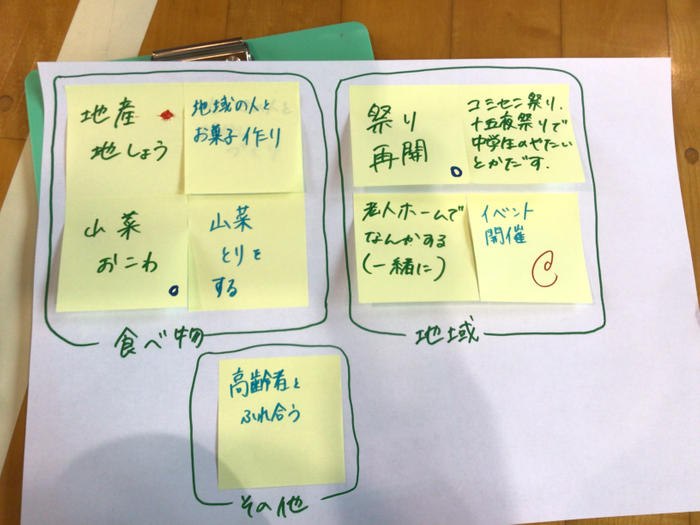 地産
地しょう
地域の人と
お菓子作り
山菜
おこわ
山菜
とりを
する
食べ物
祭り
再開
コミセン祭り.
十五夜祭りで
中学生のやたい
とかだす.
老人ホームで
なんかする
(一緒に)
イベント
開催
地域
高齢者と
ふれ合う
その他